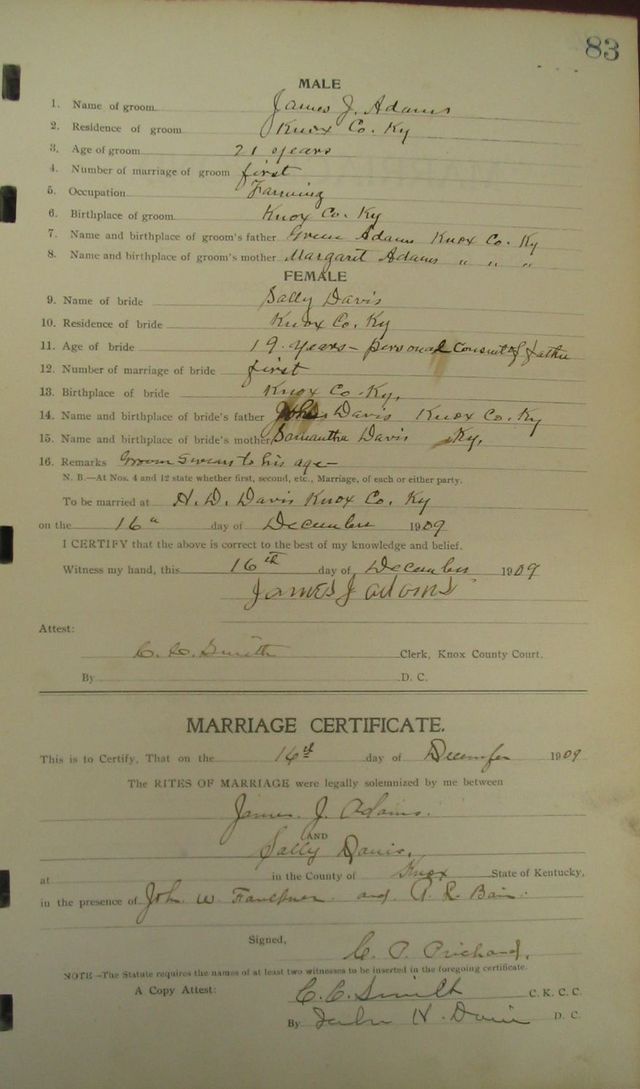 83
MALE
1. Name of groom James J. Adams
2. Residence of groom Knox Co. Ky
3. Age of groom 21 years
4. Number of marriage of groom first
5. Occupation Farming
6. Birthplace of groom Knox Co. Ky
7. Name and birthplace of groom's father Green Adams Knox Co. Ky
8. Name and birthplace of groom's mother Margarit Adams " " "
FEMALE
9. Name of bride Sally Davis
10. Residence of bride Knox Co. Ky
11. Age of bride 19 years - personal consent of father
12. Number of marriage of bride first
13. Birthplace of bride Knox Co. Ky.
14. Name and birthplace of bride's father Davis Knox Co. Ky
15. Name and birthplace of bride's mother Samantha Davis Ky.
16. Remarks Groom swears to his age -
N. B.—At Nos. 4 and 12 state whether first, second, etc., Marriage, of each or either party.
To be married at H. D. Davis Knox Co. Ky
on the 16 day of December 1909
I CERTIFY that the above is correct to the best of my knowledge and belief.
Witness my hand, this 16th day of December 1909
James J Adams
Attest:
C. C. Smith Clerk, Knox County Court.
By D. C.
MARRIAGE CERTIFICATE.
This is to Certify, That on the 16th day of December 1909
The RITES OF MARRIAGE were legally solemnized by me between
James. J. Adams.
AND
Sally Davis.
at in the County of Knox State of Kentucky,
in the presence of John W. Faulkner and R. Bain.
Signed,
C. P. Prichard,
NOTE—The Statute requires the names of at least two witnesses to be inserted in the foregoing certificate.
A Copy Attest: C. C. Smith C. K. C. C.
By H. Davis D. C.